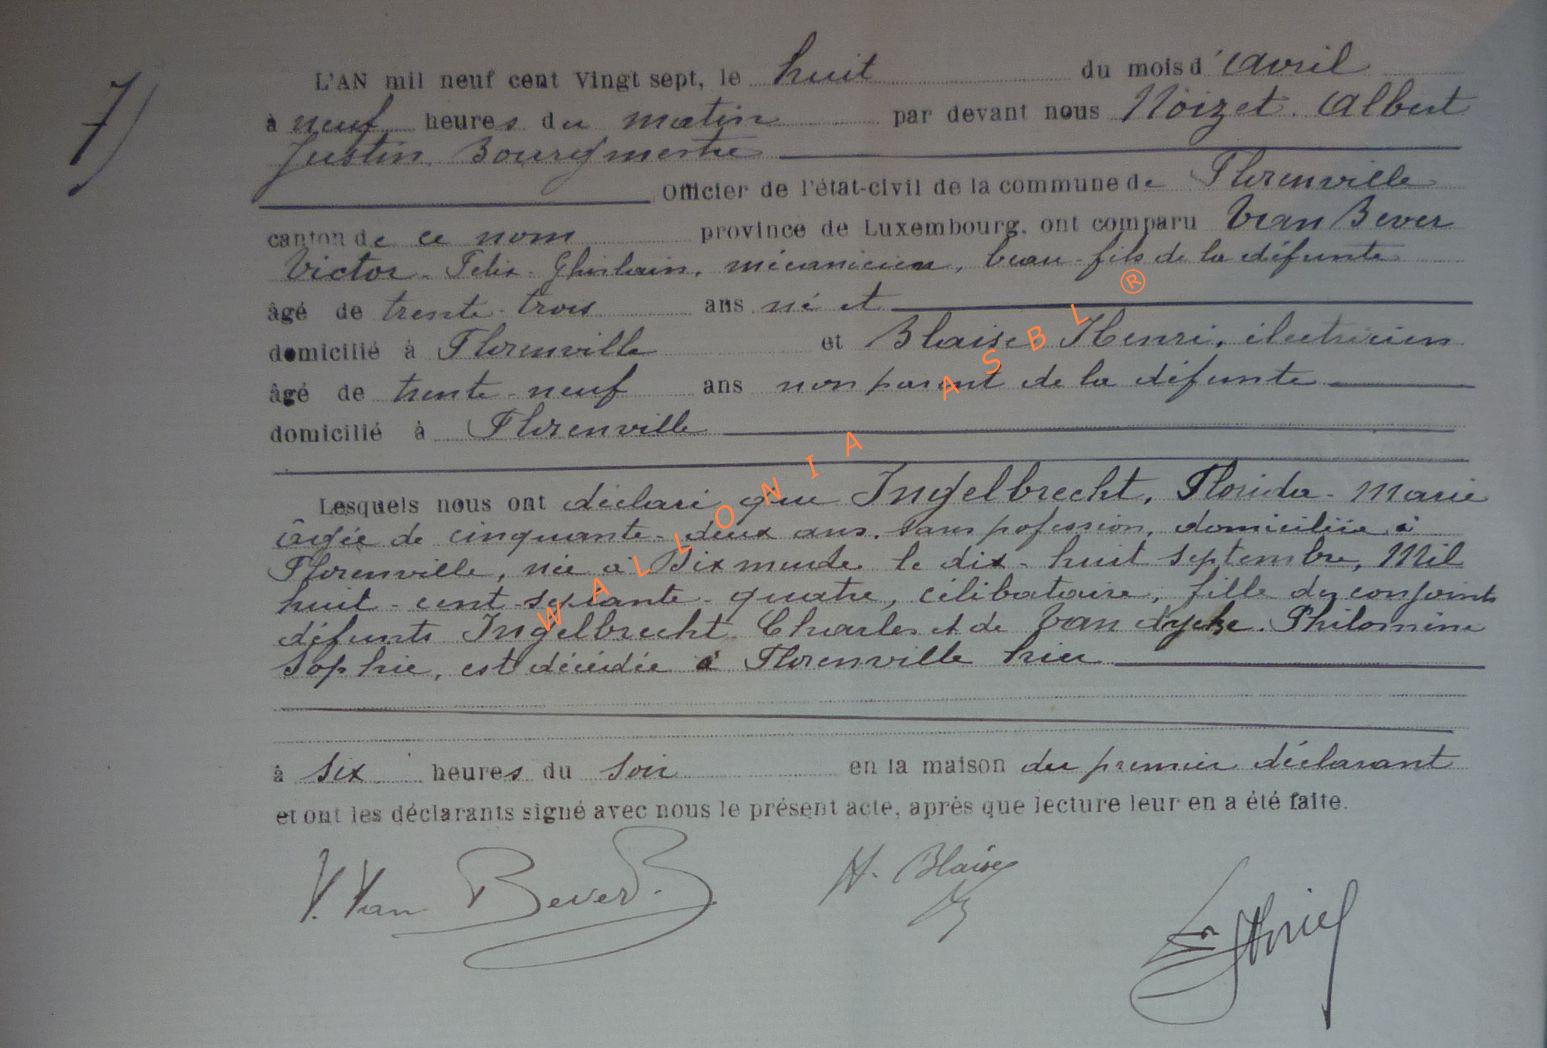 7)
L'AN mil neuf cent Vingt sept, le huit du mois d'avril
à neuf heures du matin par devant nous Noizet Albert
Justin Bourgmestre
Officier de l'état-civil de la commune de Florenville
canton de ce nom province de Luxembourg, ont comparu Van Bever
Victor Felix Ghislain, mécanicien, beau-fils de la défunte
âgé de trente-trois ans né et
domicilié à Florenville et Blaise Henri, électricien
âgé de trente-neuf ans non parent de la défunte
domicilié à Florenville
Lesquels nous ont déclaré que Ingelbrecht, Florida-Marie
âgée de cinquante-deux ans, sans pofession, domiciliée à
Florenville, née à Dixmude le dix-huit septembre, Mil
huit-cent-septante-quatre, célibataire, fille des conjoints
défunts Ingelbrecht Charles et de Van dycke Philomène
Sophie, est décédée à Florenville hier
à six heures du soir en la maison du premier déclarant
et ont les déclarants signé avec nous le présent acte, après que lecture leur en a été faite.
V. Van Bever H. Blaise
WALLONIA ASBL ®